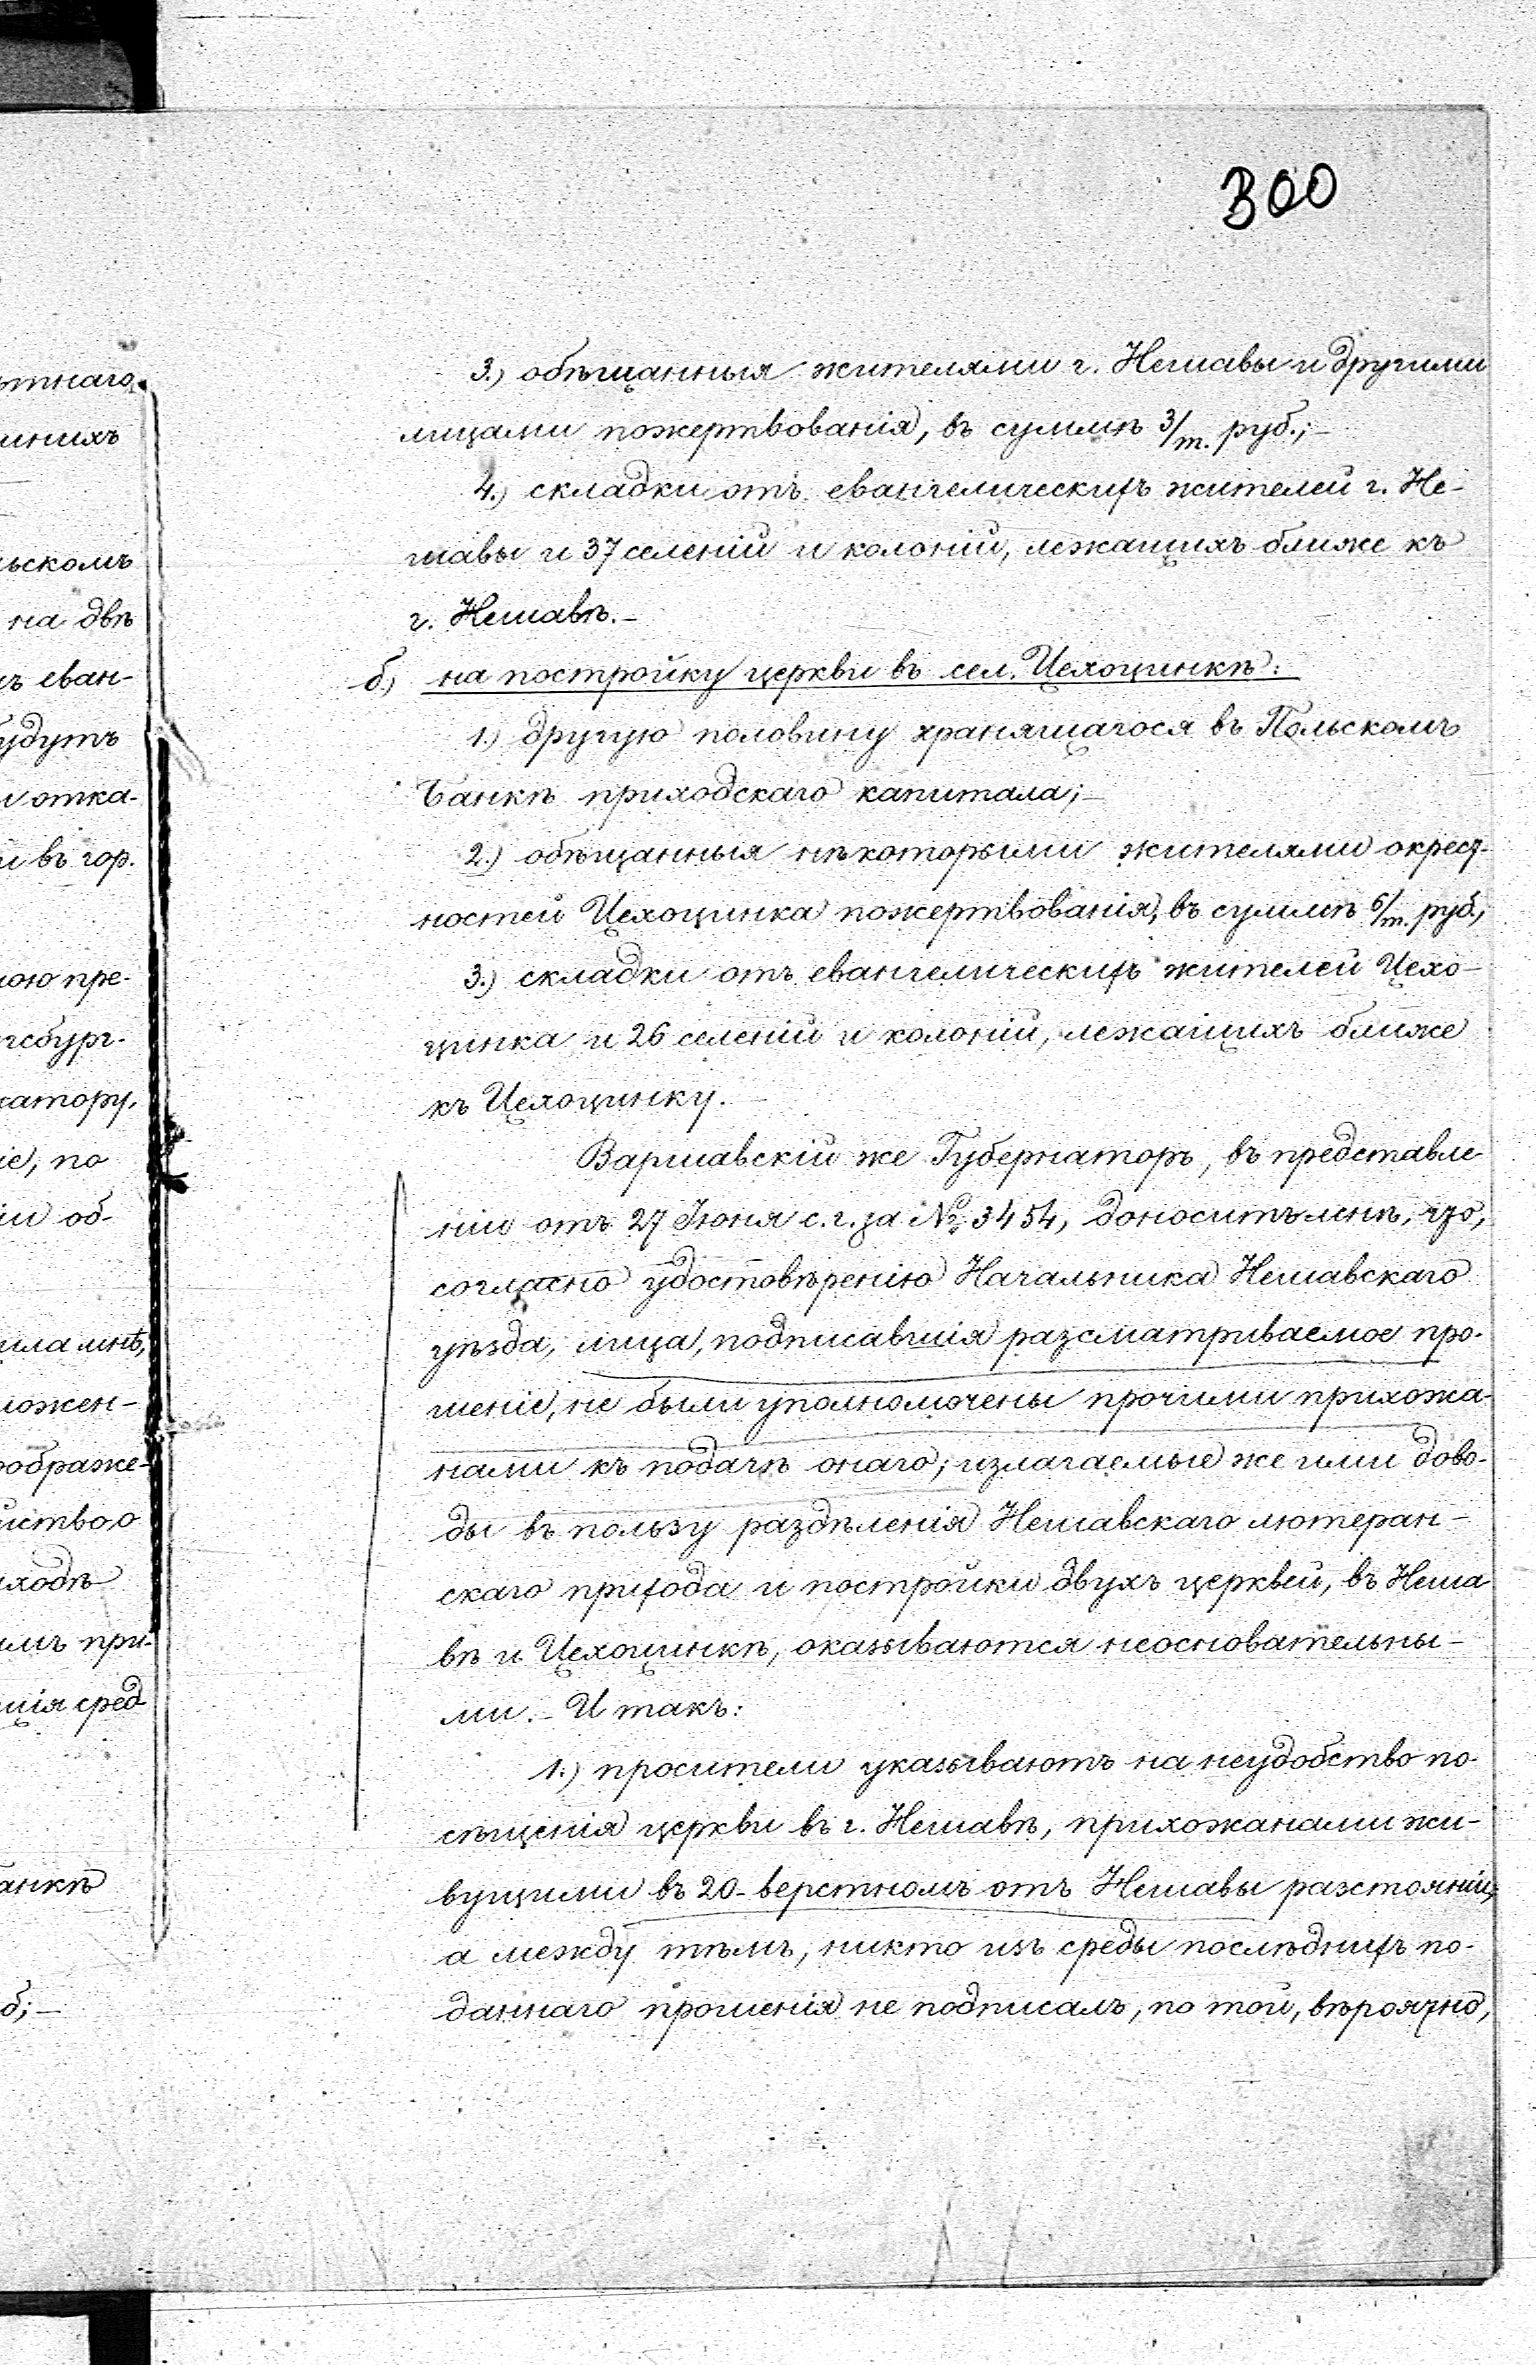 300
3.) обѣщанныя жителями г. Нешавы и другими
лицами пожертвованія, въ суммѣ 3/т. руб.;—
4.) складки отъ евангелическихъ жителей г. Не-
шавы и 37 селеній и колоній, лежащихъ ближе къ
г. Нешавѣ.—
б) на постройку церкви въ сел. Цехоцинкѣ:
1.) другую половину хранящагося въ Польскомъ
Банкѣ приходскаго капитала;—
2.) обѣщанныя нѣкоторыми жителями окрест-
ностей Цехоцинка пожертвованія, въ суммѣ 6/т. руб.,
3.) складки отъ евангелическихъ жителей Цехо-
цинка и 26 селеній и колоній, лежащихъ ближе
къ Цехоцинку.
Варшавскій же Губернаторъ, въ представле-
ніи отъ 27 Іюня с. г. за № 3454, доноситъ мнѣ, что,
согласно удостовѣренію Начальника Нешавскаго
уѣзда, лица, подписавшія разсматриваемое про-
шеніе, не были уполномочены прочими прихожа-
нами къ подачѣ онаго; излагаемые же ими дово-
ды въ пользу раздѣленія Нешавскаго лютеран-
скаго прихода и постройки двухъ церквей, въ Неша
вѣ и Цехоцинкѣ, оказываются неосновательны-
ми.— И такъ:
1.) просители указываютъ на неудобство по-
сѣщенія церкви въ г. Нешавѣ, прихожанами жи-
вущими въ 20-верстномъ отъ Нешавы разстояніи,
а между тѣмъ, никто изъ среды послѣднихъ по-
даннаго прошенія не подписалъ, по той, вѣроятно,